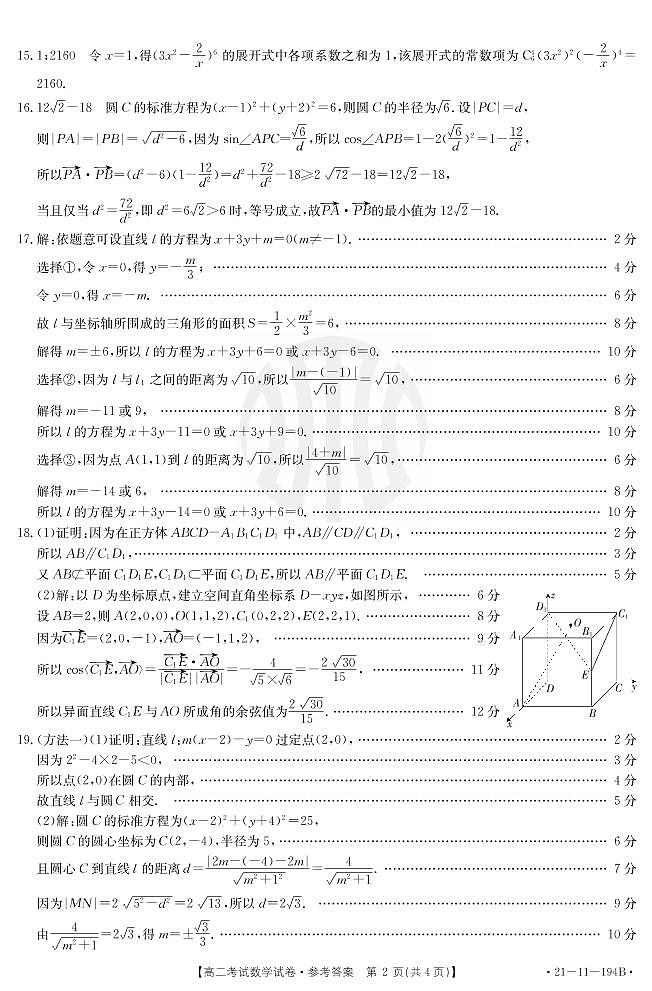 15. 1;2160 令 x=1,得(3x²-2/x)⁶ 的展开式中各项系数之和为 1,该展开式的常数项为 C₆⁴(3x²)²(-2/x)⁴=
2160.
16. 12√2-18 圆 C 的标准方程为(x-1)²+(y+2)²=6,则圆 C 的半径为√6. 设|PC|=d,
则|PA|=|PB|=√(d²-6),因为 sin∠APC=√6/d,所以 cos∠APB=1-2(√6/d)²=1-12/d²,
所以PA·PB=(d²-6)(1-12/d²)=d²+72/d²-18≥2√72-18=12√2-18,
当且仅当 d²=72/d²,即 d²=6√2>6 时,等号成立,故PA·PB的最小值为 12√2-18.
17. 解:依题意可设直线 l 的方程为 x+3y+m=0(m≠-1). …… 2 分
选择①,令 x=0,得 y=-m/3; …… 4 分
令 y=0,得 x=-m. …… 6 分
故 l 与坐标轴所围成的三角形的面积 S=1/2×m²/3=6, …… 8 分
解得 m=±6,所以 l 的方程为 x+3y+6=0 或 x+3y-6=0. …… 10 分
选择②,因为 l 与 l₁ 之间的距离为√10,所以|m-(-1)|/√10=√10, …… 6 分
解得 m=-11 或 9, …… 8 分
所以 l 的方程为 x+3y-11=0 或 x+3y+9=0. …… 10 分
选择③,因为点 A(1,1)到 l 的距离为√10,所以|4+m|/√10=√10, …… 6 分
解得 m=-14 或 6, …… 8 分
所以 l 的方程为 x+3y-14=0 或 x+3y+6=0. …… 10 分
18. (1)证明:因为在正方体 ABCD-A₁B₁C₁D₁ 中,AB∥CD∥C₁D₁, …… 2 分
所以 AB∥C₁D₁, …… 3 分
又 AB⊄平面 C₁D₁E,C₁D₁⊂平面 C₁D₁E,所以 AB∥平面 C₁D₁E. …… 5 分
(2)解:以 D 为坐标原点,建立空间直角坐标系 D-xyz,如图所示, …… 6 分
设 AB=2,则 A(2,0,0),O(1,1,2),C₁(0,2,2),E(2,2,1). …… 8 分
因为C₁E=(2,0,-1),AO=(-1,1,2), …… 9 分
所以 cos⟨C₁E,AO⟩=C₁E·AO/|C₁E||AO|=-4/(√5×√6)=-2√30/15, …… 11 分
所以异面直线 C₁E 与 AO 所成角的余弦值为2√30/15. …… 12 分
z
D₁
C₁
O
A₁
B₁
E
D
C
y
A
B
x
19. (方法一)(1)证明:直线 l:m(x-2)-y=0 过定点(2,0), …… 2 分
因为 2²-4×2-5<0, …… 3 分
所以点(2,0)在圆 C 的内部, …… 4 分
故直线 l 与圆 C 相交. …… 5 分
(2)解:圆 C 的标准方程为(x-2)²+(y+4)²=25,
则圆 C 的圆心坐标为 C(2,-4),半径为 5, …… 6 分
且圆心 C 到直线 l 的距离 d=|2m-(-4)-2m|/√(m²+1²)=4/√(m²+1). …… 7 分
因为|MN|=2√(5²-d²)=2√13,所以 d=2√3. …… 9 分
由4/√(m²+1)=2√3,得 m=±√3/3. …… 10 分
【高二考试数学试卷·参考答案 第 2 页(共 4 页)】 ·21-11-194B·